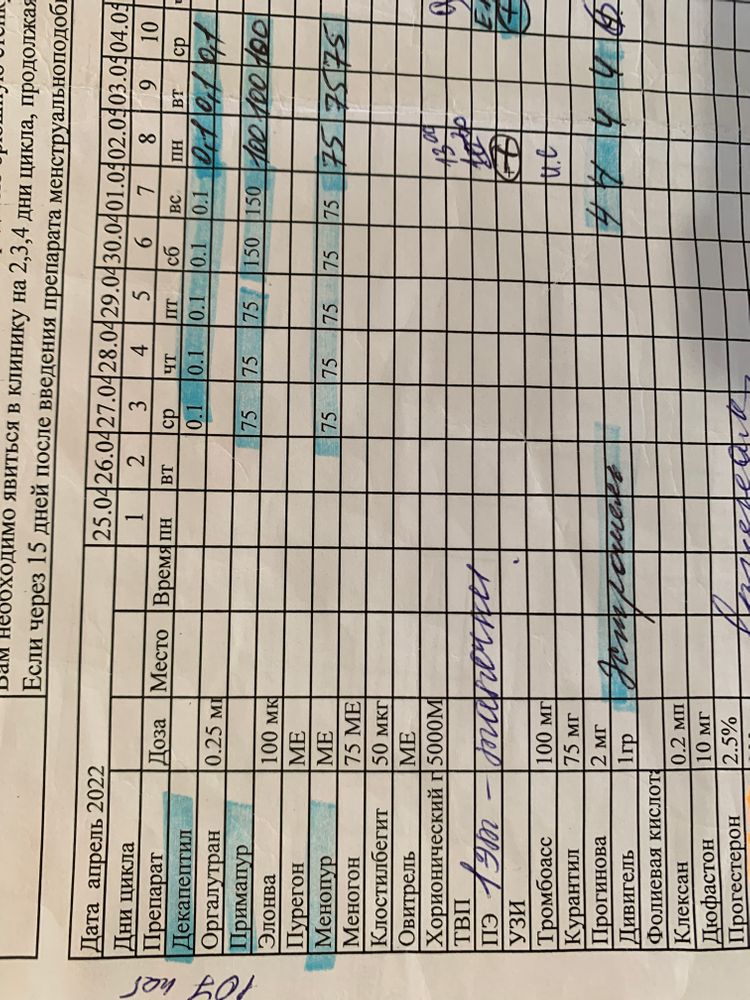 Вам необходимо явиться в клинику на 2,3,4 дни цикла, продолжая
Если через 15 дней после введения препарата менструальноподоб
Дата апрель 2022 25.04 26.04 27.04 28.04 29.04 30.04 01.05 02.05 03.05 04.05
Дни цикла 1 2 3 4 5 6 7 8 9 10
Препарат Доза Место Время пн вт ср чт пт сб вс пн вт ср
Декапептил 0.1 0.1 0.1 0.1 0.1 0,1 0,1 0,1
Оргалутран 0.25 мг
Примапур 75 75 75 150 150 100 100 100
Элонва 100 мк
Пурегон МЕ
Менопур МЕ 75 75 75 75 75 75 75 75
Меногон 75 МЕ
Клостилбегит 50 мкг
Овитрель МЕ
Хорионический г 5000М
ТВП 13 00
ПЭ 1 эт -
УЗИ +
Тромбоасс 100 мг
Курантил 75 мг
Прогинова 2 мг 4 4 4 4
Дивигель 1гр Эстрожель
Фолиевая кислота
Клексан 0.2 мл
Дюфастон 10 мг
Прогестерон 2.5%
107 каб